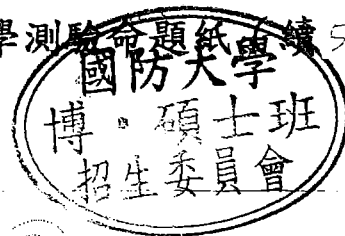 學測驗命題紙 續5
國防大學
博·碩士班
招生委員會